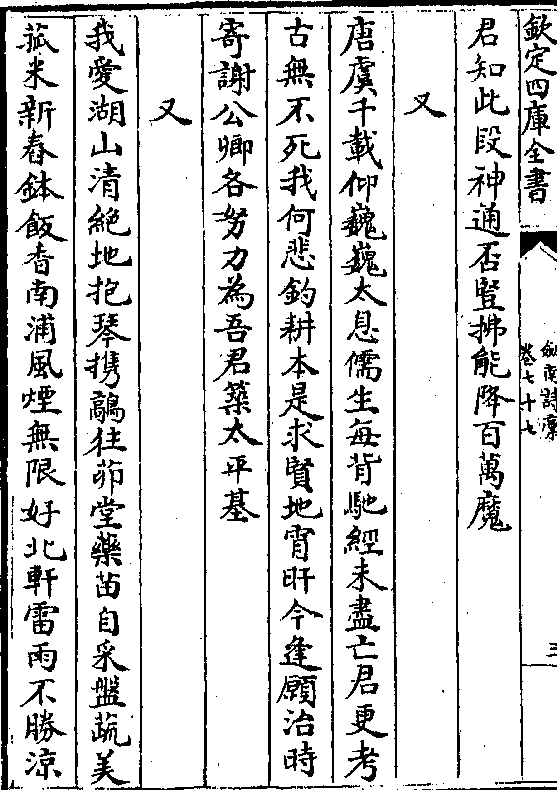 欽定四庫全書
劍南詩藁
卷七十七
三
君知此段神通否豎拂能降百萬魔
又
唐虞千載仰巍巍太息儒生每背馳經未盡亡君更考
古無不死我何悲釣耕本是求賢地宵旰今逢願治時
寄謝公卿各努力為吾君築太平基
又
我愛湖山清絶地抱琴攜鶴往茆堂藥苗自采盤蔬美
菰米新舂鉢飯香南浦風煙無限好北軒雷雨不勝涼